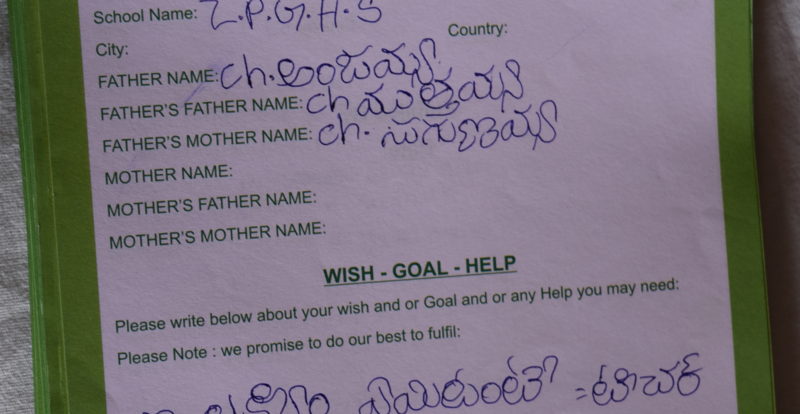 School Name: Z.P.G.H.S
Country:
City:
FATHER NAME: ch. అంజయ్య
FATHER'S FATHER NAME: ch ముత్తయ్య
FATHER'S MOTHER NAME: ch. సుగుణయ్య
MOTHER NAME:
MOTHER'S FATHER NAME:
MOTHER'S MOTHER NAME:
WISH - GOAL - HELP
Please write below about your wish and or Goal and or any Help you may need:
Please Note : we promise to do our best to fulfil:
ఏమిటంటే = టీచర్